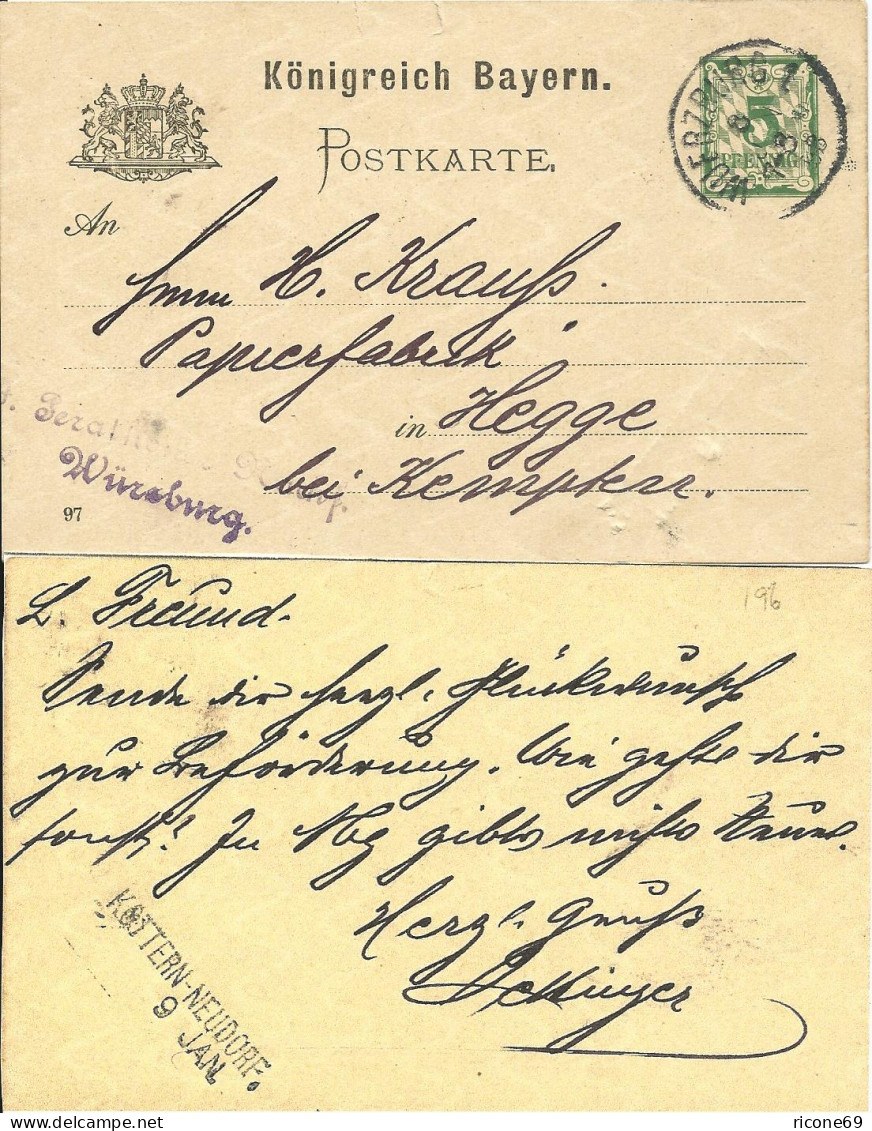 Königreich Bayern.
POSTKARTE.
WUERZBURG 1.
5
PFENNIG
An
Herrn H. Krauß.
Papierfabrik
in Hegge
bei Kempten.
Würzburg.
97
196
L. Freund.
Sende dir herzl. Glückwunsch
zur Beförderung. Wie gehts dir
sonst? In Nbg gibts nichts Neues.
Herzl. Gruß
KOTTERN-NEUDORF.
9 JAN.
delcampe.net
ricone69